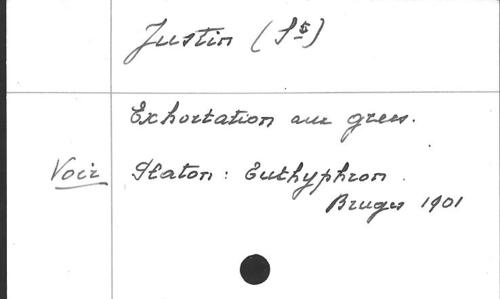 Justin (St)
Exhortation aux grecs.
Voir Platon : Euthyphron.
Bruges 1901